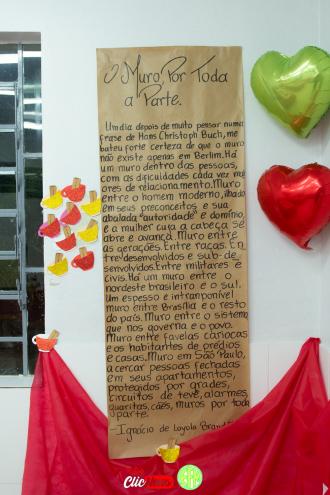 O Muro, Por Toda
a Parte.
Um dia depois de muito pensar numa
frase de Hans Christoph Buch, me
bateu forte certeza de que o muro
não existe apenas em Berlim. Há
um muro dentro das pessoas,
com as dificuldades cada vez mai
ores de relacionamento. Muro
entre o homem moderno, ilhado
em seus preconceitos e sua
abalada "autoridade" e domínio,
a mulher cuja a cabeça se
abre e avança. Muro entre
as gerações. Entre raças. En
tre desenvolvidos e sub-de
senvolvidos. Entre militares e
civis. Há um muro entre o
nordeste brasileiro e o sul.
Um espesso e intransponível
muro entre Brasília e o resto
do país. Muro entre o sistema
que nos governa e o povo.
Muro entre favelas cariocas
e os habitantes de prédios
e casas. Muro em São Paulo,
a cercar pessoas fechadas
em seus apartamentos,
protegidos por grades,
circuitos de tevê, alarmes,
guaritas, cães, muros por toda
parte.
-Ignácio de Loyola
Clic